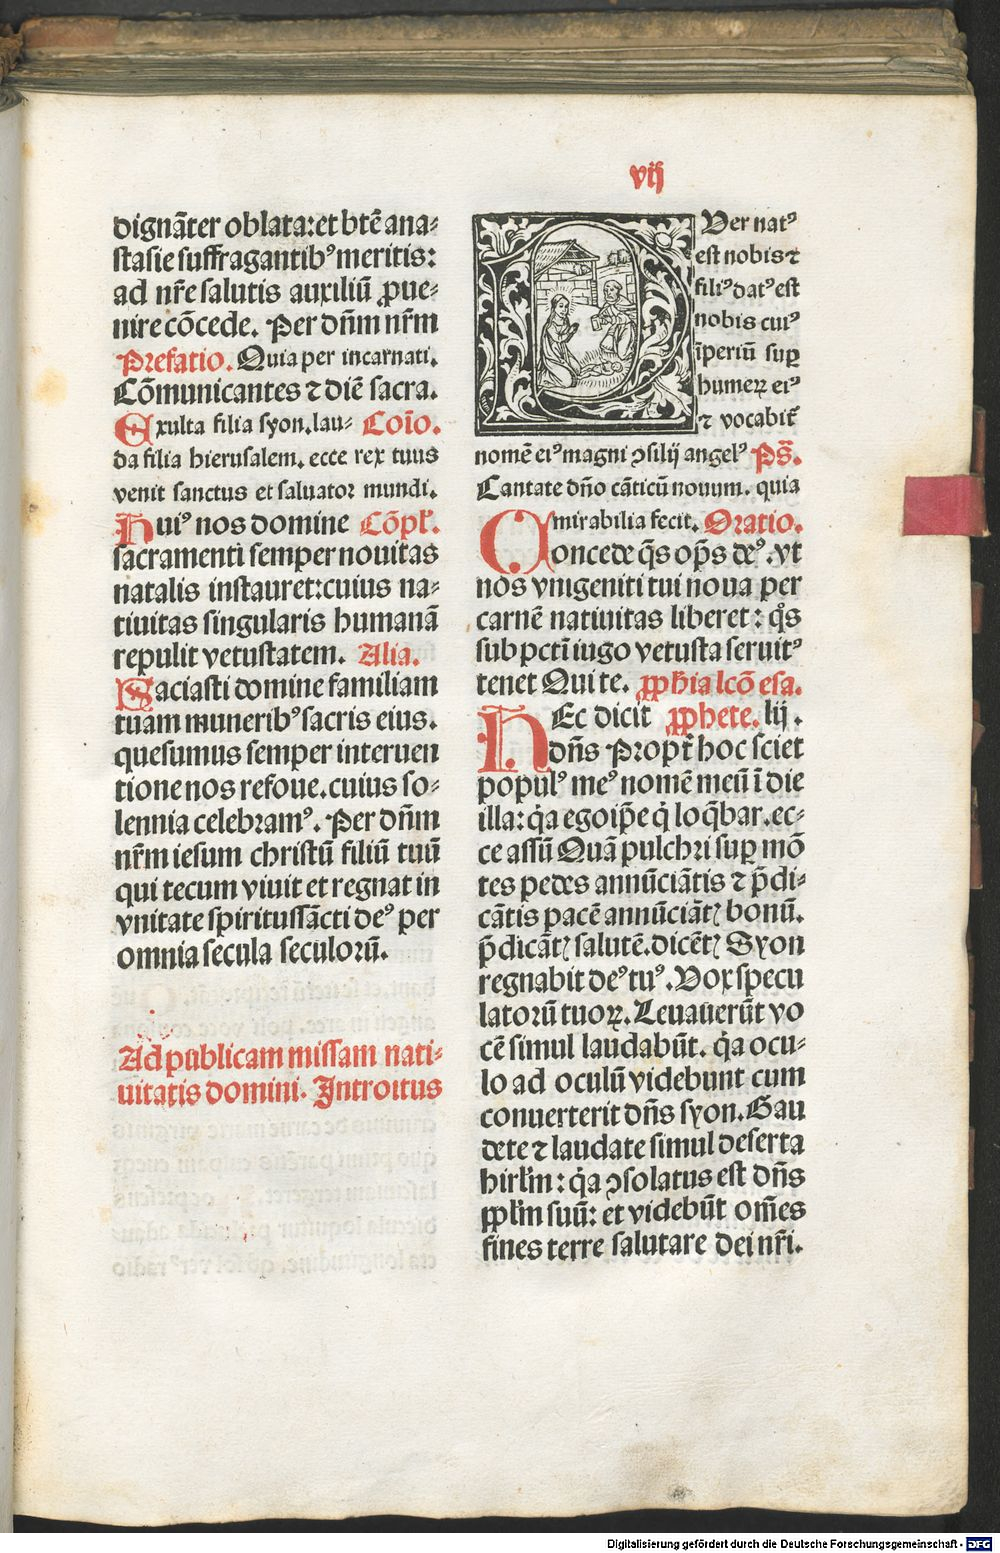 vij
dignãter oblata: et btẽ ana⸗
stasie suffragantibꝰ meritis:
ad nr̃e salutis auxiliũ ꝓue⸗
nire cõcede. Per dñm nr̃m
Prefatio. Quia per incarnati.
Cõmunicantes ⁊ diẽ sacra.
Exulta filia syon, lau⸗ Coĩo.
da filia hierusalem. ecce rex tuus
venit sanctus et saluator mundi.
Huiꝰ nos domine Cõpl̃.
sacramenti semper nouitas
natalis instauret: cuius na⸗
tiuitas singularis humanã
repulit vetustatem. Alia.
Saciasti domine familiam
tuam muneribꝰ sacris eius.
quesumus semper interuen
tione nos refoue. cuius so⸗
lennia celebramꝰ. Per dñm
nr̃m iesum christũ filiũ tuũ
qui tecum viuit et regnat in
vnitate spiritussãcti deꝰ per
omnia secula seculorũ.
Ad publicam missam nati⸗
uitatis domini. Introitus
PVer natꝰ
est nobis ⁊
filiꝰ datꝰ est
nobis cuiꝰ
ĩperiũ suꝑ
humeꝝ eiꝰ
⁊ vocabit̃
nomẽ eiꝰ magni ↄsilij angelꝰ Ps̃.
Cantate dño cãticũ nouum. quia
mirabilia fecit. Oratio.
Concede q̃s op̃s deꝰ. vt
nos vnigeniti tui noua per
carnẽ natiuitas liberet: q̊s
sub pctĩ iugo vetusta seruitꝰ
tenet Qui te. ꝓphia lcõ esa.
HEc dicit ꝓphete. lij.
dñs Propt̃ hoc sciet
populꝰ meꝰ nomẽ meũ ĩ die
illa: q̃a ego ip̃e q̇ loq̃bar. ec⸗
ce assũ Quã pulchri suꝑ mõ
tes pedes annũciãtis ⁊ p̃di⸗
cãtis pacẽ annũciãtꝭ bonũ.
p̃dicãtꝭ salutẽ. dicẽtꝭ Syon
regnabit deꝰ tuꝰ. Vox specu
latorũ tuoꝝ. Leuauerũt vo
cẽ simul laudabũt. q̃a ocu⸗
lo ad oculũ videbunt cum
conuerterit dñs syon. Gau
dete ⁊ laudate simul deserta
hirlm̃: q̃a ↄsolatus est dñs
ꝓplm̃ suũ: et videbũt om̃es
fines terre salutare dei nr̃i.
Digitalisierung gefördert durch die Deutsche Forschungsgemeinschaft - DFG